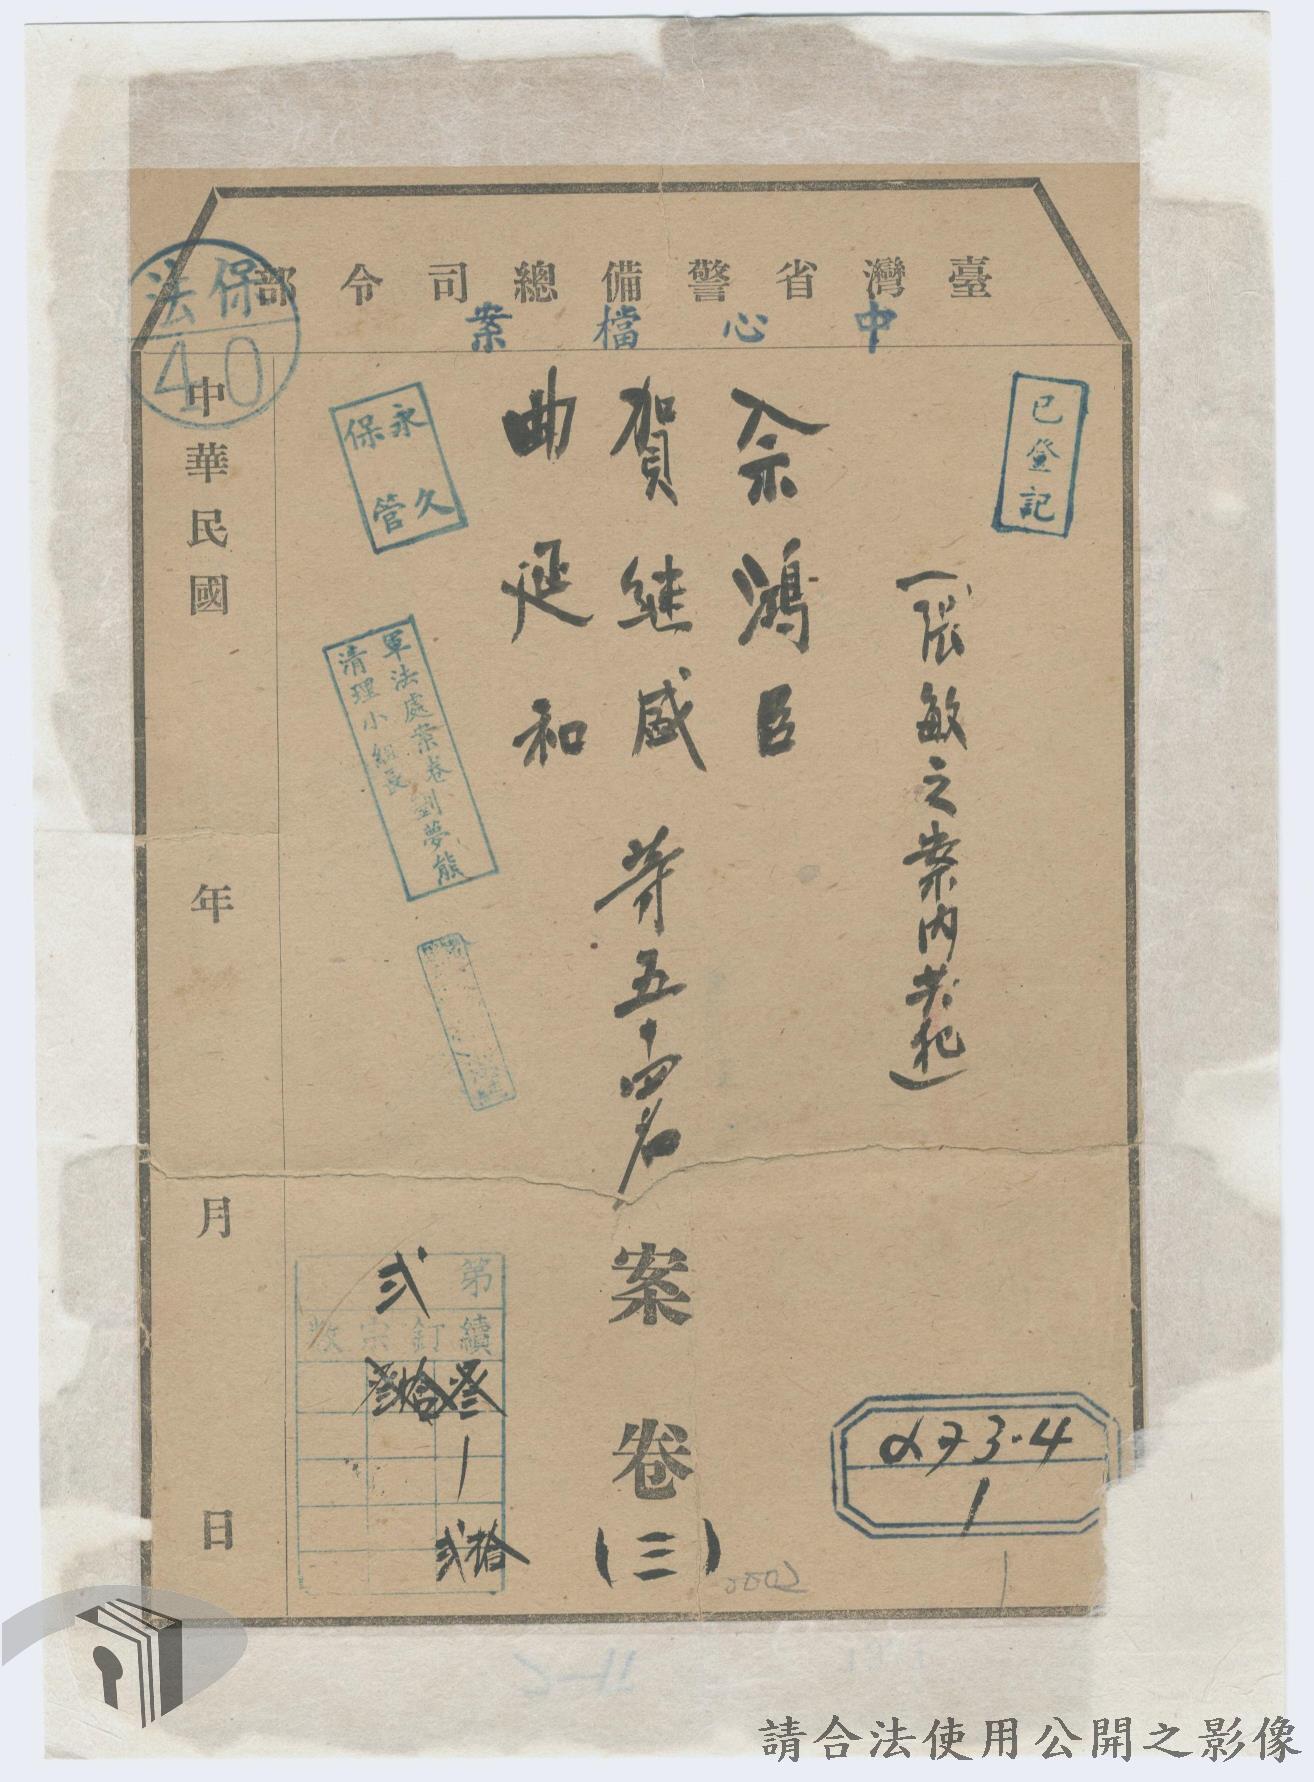 臺灣省警備總司令部
中心檔案
保法
40
已登記
(張敏之案內共犯)
佘鴻臣
賀継盛
曲延和
等五十四名
案卷(三)
永久
保管
軍法處案卷
清理小組長
劉夢熊
中華民國
年
月
日
第弍
續訂宗數
弍拾
273.4
1
1
0002
請合法使用公開之影像